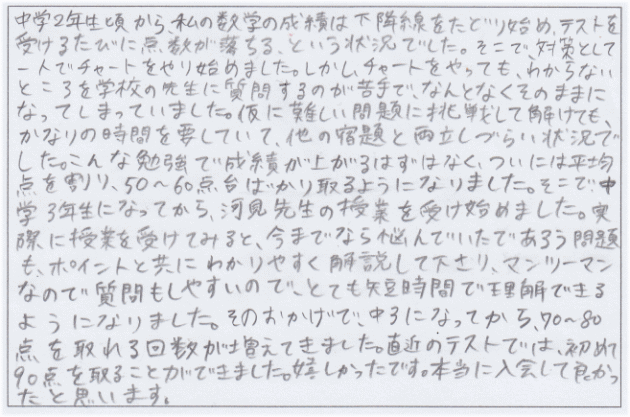 中学2年生頃から、私の数学の成績は下降線をたどり始め、テストを
受けるたびに点数が落ちる、という状況でした。そこで、対策として
一人でチャートをやり始めました。しかし、チャートをやっても、わからない
ところを学校の先生に質問するのが苦手で、なんとなくそのままに
なってしまっていました。仮に難しい問題に挑戦して解けても、
かなりの時間を要していて、他の宿題と両立しづらい状況で
した。こんな勉強で成績が上がるはずはなく、ついには平均
点を割り、50～60点台ばかり取るようになりました。そこで中
学3年生になってから、河見先生の授業を受け始めました。実
際に授業を受けてみると、今までなら悩んでいたであろう問題
も、ポイントと共にわかりやすく解説して下さり、マンツーマン
なので質問もしやすいので、とても短時間で理解できる
ようになりました。そのおかげで、中3になってから、70～80
点を取れる回数が増えてきました。直近のテストでは、初めて
90点を取ることができました。嬉しかったです。本当に入会して良かっ
たと思います。